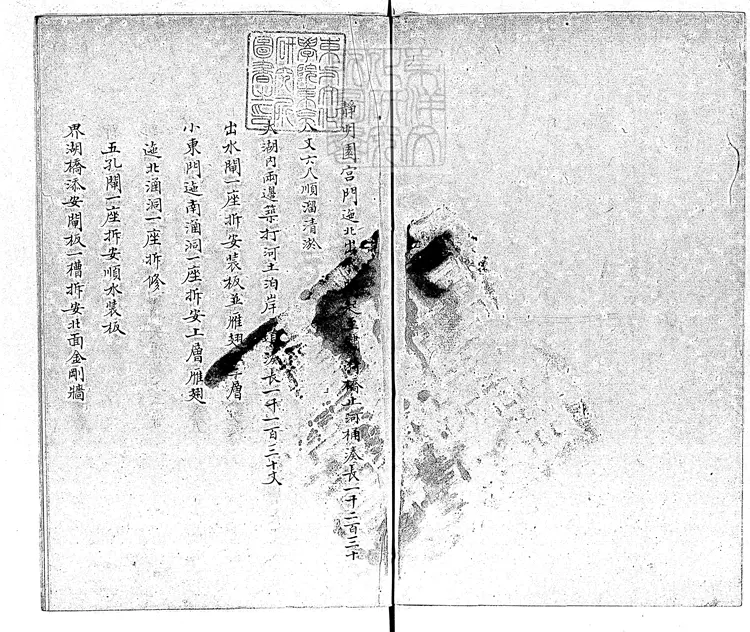 東方文化學院東京研究所圖書之印
靜明園宮門迤北出 橋止河桶湊長一千二百三十
丈六人順溜清淤
大湖內兩邊築打河土泊岸 湊長一千一百三十丈
出水閘一座拆安裝板並雁翅 層
小東門迤南涵洞一座拆安上層雁翅
迤北涵洞一座拆修
五孔閘一座拆安順水裝板
界湖橋添安閘板一槽拆安北面金剛牆